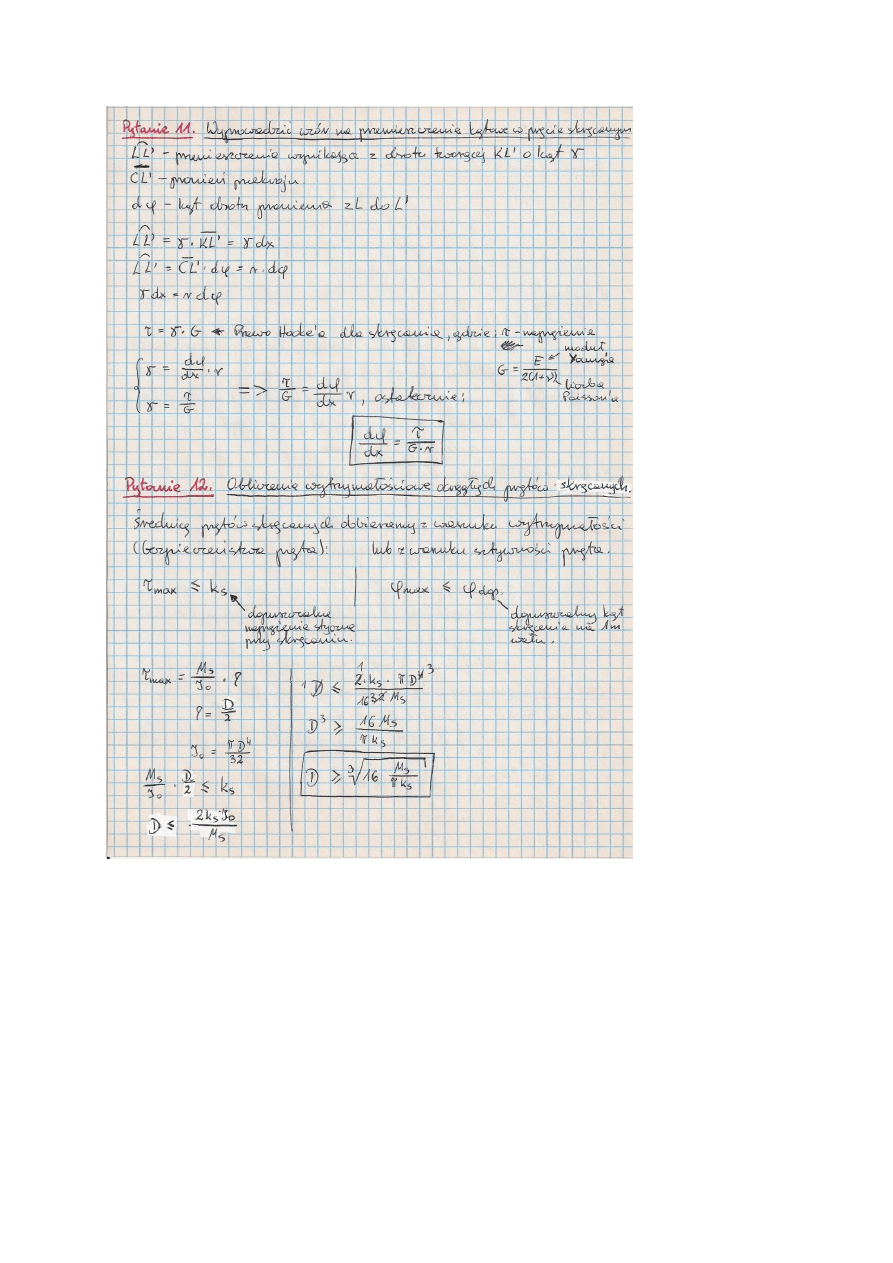 Pytanie 11. Wyprowadzić wzór na przemieszczenia kątowe w pręcie skręcanym
LL' - przemieszczenie wynikające z obrotu tworzącej KL' o kąt γ
CL' - promień przekroju.
dφ - kąt obrotu promienia z L do L'
LL' = γ · KL' = γ dx
LL' = CL' · dφ = r · dφ
γ dx = r dφ
τ = γ · G ← Prawo Hooke'a dla skręcania, gdzie: τ - naprężenie
G = E / 2(1+ν)
moduł Younga
liczba Poisson'a
{ γ = dφ/dx · r
γ = τ/G
=> τ/G = dφ/dx r, ostatecznie:
dφ/dx = τ/G·r
Pytanie 12. Obliczenia wytrzymałościowe okrągłych prętów skręcanych.
Średnicę prętów skręcanych dobieramy z warunku wytrzymałości
(bezpieczeństwa pręta): lub z warunku sztywności pręta.
τmax ≤ ks | φmax ≤ φdop.
dopuszczalne
naprężenie styczne
przy skręcaniu.
dopuszczalny kąt
skręcenia na 1m
wału.
τmax = Ms/J₀ · ρ
ρ = D/2
J₀ = πD⁴/32
Ms/J₀ · D/2 ≤ ks
D ≤ · 2ks·J₀/Ms
1 D ≤ 1 2·ks · πD⁴ ³ / 16 32 Ms
D³ ≥ 16 Ms / π ks
D ≥ ³√16 Ms/π ks